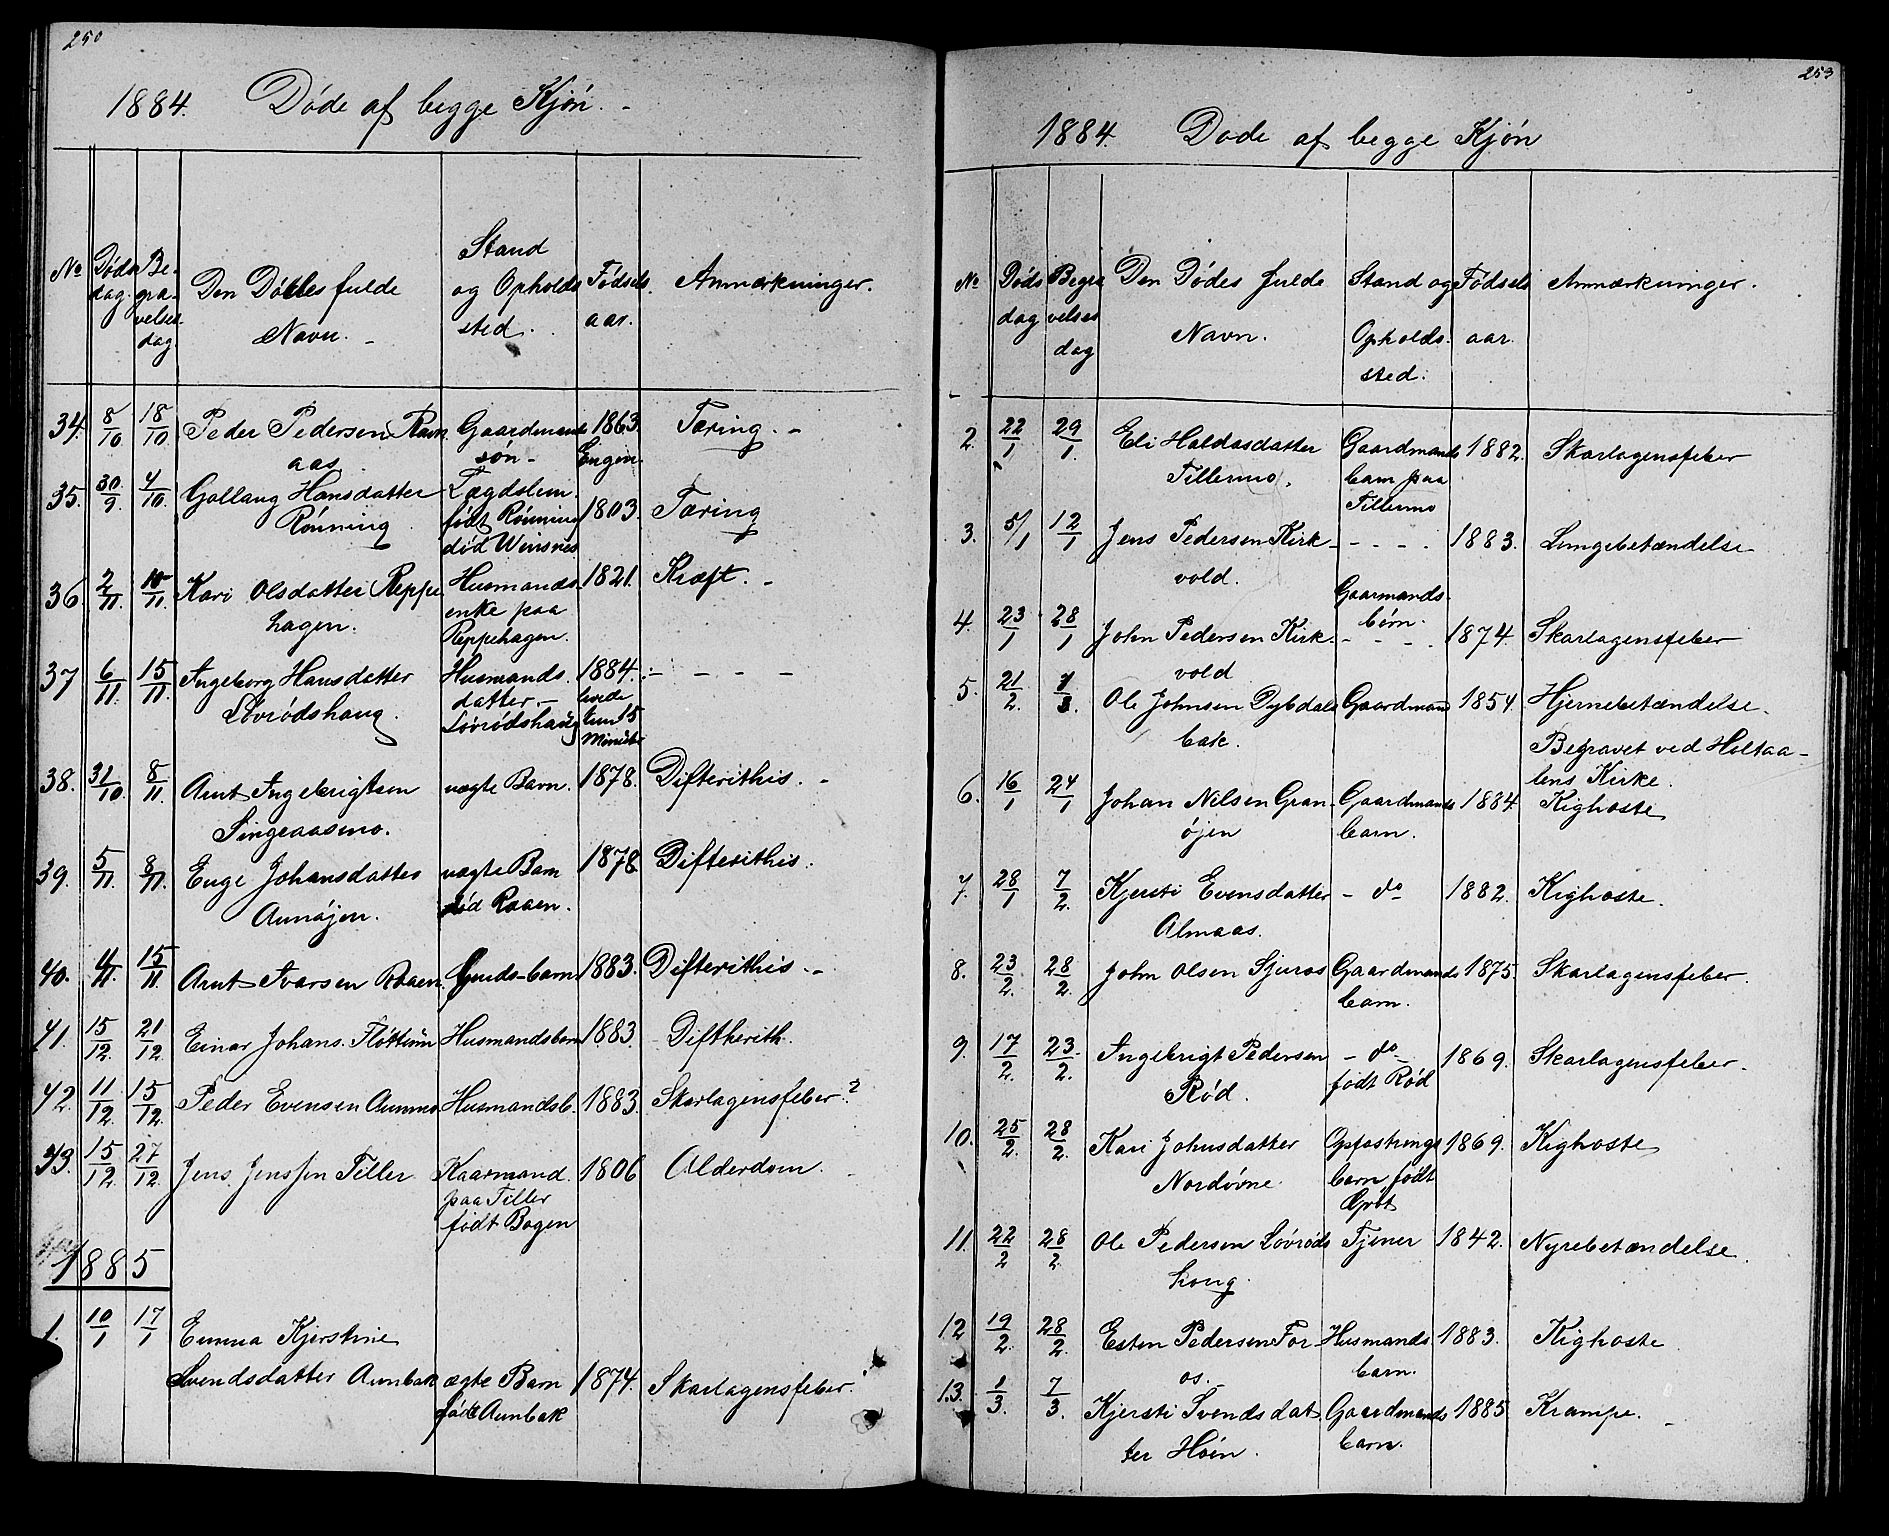 250
1884. Døde af begge Kjøn.
No Døds dag. Begravelses dag. Den Dødes fulde Navn. Stand og Opholds sted. Fødsels aar. Anmærkninger.
34. 8/10 18/10 Peder Pedersen Ravn Gaardmands 1863. Tæring.
aas søn Eugen.
35. 30/9. 4/10. Gollaug Hansdatter Lægdslem. 1803. Tæring
Rønning født Rønning
død Winsnes
36. 2/11. 10/11. Kari Olsdatter Reppe Husmands 1821. Kræft.
hagen. enke paa
Reppehagen.
37 6/11. 15/11. Ingeborg Hansdatter Husmands. 1884. - - - -
Løvrødshaug. datter. levede
Løvrødshaug kun 15
Minuter
38. 31/10. 8/11. Arnt Ingebrigtsen uægte Barn. 1878. Difterithis.
Singsaasmo.
39. 5/11. 8/11. Enge Johansdatter uægte Barn 1878 Difterithis.
Aunøjen. død Raaen.
40. 4/11. 15/11. Arnt Ivarsen Raaen. Gmds-barn 1883. Difterithis.
41. 15/12. 21/12. Einar Johans. Fløttum Husmandsbarn 1883. Diftherith.
42. 11/12. 15/12. Peder Evensen Aunmo Husmandsb. 1883. Skarlagensfeber?
43. 15/12. 27/12. Jens Jenssen Tiller Kaarmand 1806 Alderdom.
paa Tiller
født Bogen
1885
1. 10/1 17/1 Emma Kjerstine
Svendsdatter Aunbak ægte Barn 1874. Skarlagensfeber.
født Aunbak
253
1884. Døde af begge Kjøn
No Døds dag Begravelses dag Den Dødes fulde Navn. Stand og Opholds sted. Fødsels aar. Anmærkninger.
2. 22/1 29/1. Eli Haldosdatter Gaardmands 1882. Skarlagensfeber
Tillermo. barn paa
Tillermo
3. 5/1 12/1 Jens Pedersen Kirk - - - - 1883. Lungebetændelse
vold. Gaarmands-
børn.
4. 23/1 28/1 John Pedersen Kirk - - - 1874. Skarlagensfeber
vold
5. 21/2. 1/3. Ole Johnsen Dybdals Gaardmand 1854. Hjernebetændelse.
bak. Begravet ved Holtaa-
lens Kirke.
6. 16/1 24/1 Johan Nilsen Gran Gaardmands 1884. Kighoste
øjen barn.
7. 28/1 7/2. Kjersti Evensdatter - do 1882. Kighoste.
Almaas.
8. 23/2. 28/2. John Olsen Sjuros Gaardmands 1875. Skarlagensfeber.
barn.
9. 17/2. 23/2. Ingebrigt Pedersen - do - 1869. Skarlagensfeber.
Rød. født Rød
10. 25/2. 28/2. Kari Johnsdatter Opfostrings 1869. Kighoste
Nordøvne. barn født
Grøt
11. 22/2 28/2. Ole Pedersen Løvrøds Tjener 1842. Nyrebetændelse.
houg.
12 19/2. 28/2. Esten Pedersen For Husmands 1883. Kighoste
os. barn.
13. 1/3. 7/3. Kjersti Svendsdat Gaardmands 1885. Krampe.
ter Hoen. barn.